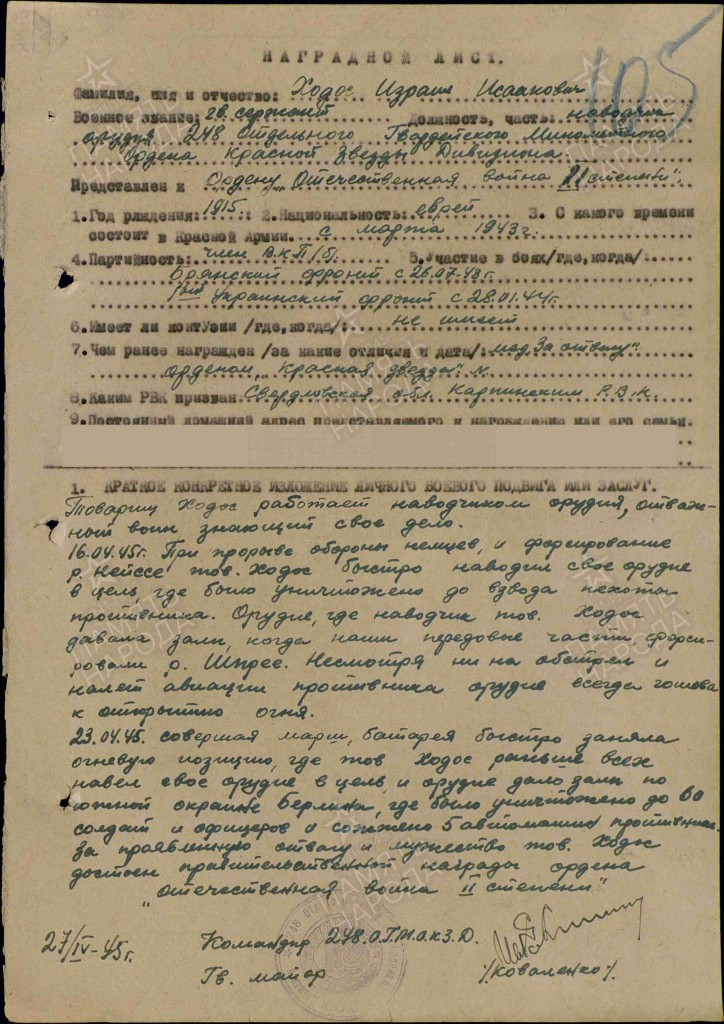 105
НАГРАДНОЙ ЛИСТ.
Фамилия, имя и отчество: Ходос Израил Исаакович
Военное звание: гв. сержант Должность, часть: наводчик
орудия 248 отдельного Гвардейского Миномётного
Ордена Красной Звезды Дивизиона.
Представлен к Ордену „Отечественная война II степени".
1. Год рждения: 1915. 2. Национальность: еврей 3. С какого времени
состоит в Красной Армии. с марта 1943 г.
4. Партийность: член ВКП/б/. 5. Участие в боях/где, когда/:
Брянский фронт с 26.07.43г.
1ый Украинский фронт с 28.01.44г.
6. Имеет ли контузии /где, когда/: не имеет
7. Чем ранее награжден /за какие отличия и дата/: мед. За отвагу"
орденом „Красная звезда" м.
8. Каким РВК призван: Свердловская обл. Карпинским Р.В.К.
9. Постоянный домашний адрес представляемого к награждению или его семьи.
1. КРАТКОЕ КОНКРЕТНОЕ ИЗЛОЖЕНИЕ ЛИЧНОГО БОЕВОГО ПОДВИГА ИЛИ ЗАСЛУГ.
Товарищ Ходос работает наводчиком орудия, отваж-
ный воин знающий свое дело.
16.04.45г. При прорыве обороны немцев, и форсирование
р. Нейссе тов. Ходос быстро наводил свое орудие
в цель, где было уничтожено до взвода пехоты
противника. Орудие, где наводчик тов. Ходос
давала залп, когда наши передовые части форси-
ровали р. Шпрее. Несмотря ни на обстрел и
налет авиации противника орудие всегда готова
к открытию огня.
23.04.45. совершая марш, батарея быстро заняла
огневую позицию, где тов Ходос раньше всех
навел свое орудие в цель, и орудие дало залп по
южной окраине Берлина, где было уничтожено до 60
солдат и офицеров и сожжено 5 автомашин противник.
За проявленную отвагу и мужество тов. Ходос
достоен правительственной награды ордена
„Отечественная война II степени"
27/IV-45г. Командир 248.О.Г.М.О.К.З.Д.
Гв. майор /Коваленко/.